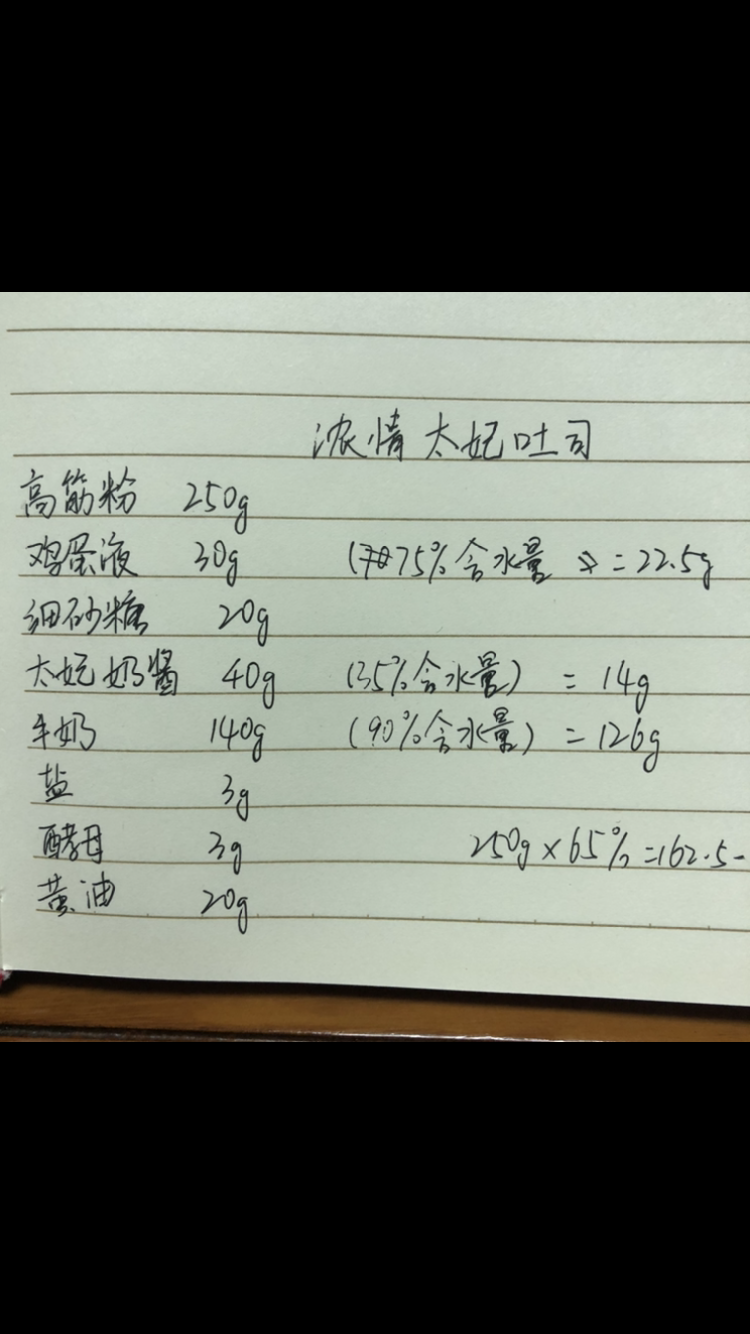 浓情太妃吐司
高筋粉 250g
鸡蛋液 30g (75%含水量 = 22.5g
细砂糖 20g
太妃奶酱 40g (35%含水量) = 14g
牛奶 140g (90%含水量) = 126g
盐 3g
酵母 3g 250g×65%=162.5
黄油 20g